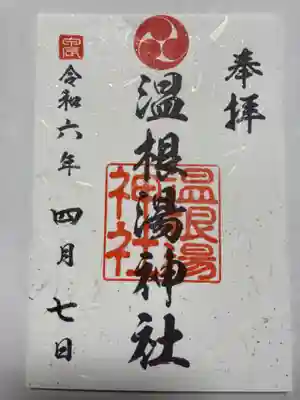 奉拝
温根湯神社
温根湯
神社
令和六年
四月
七日